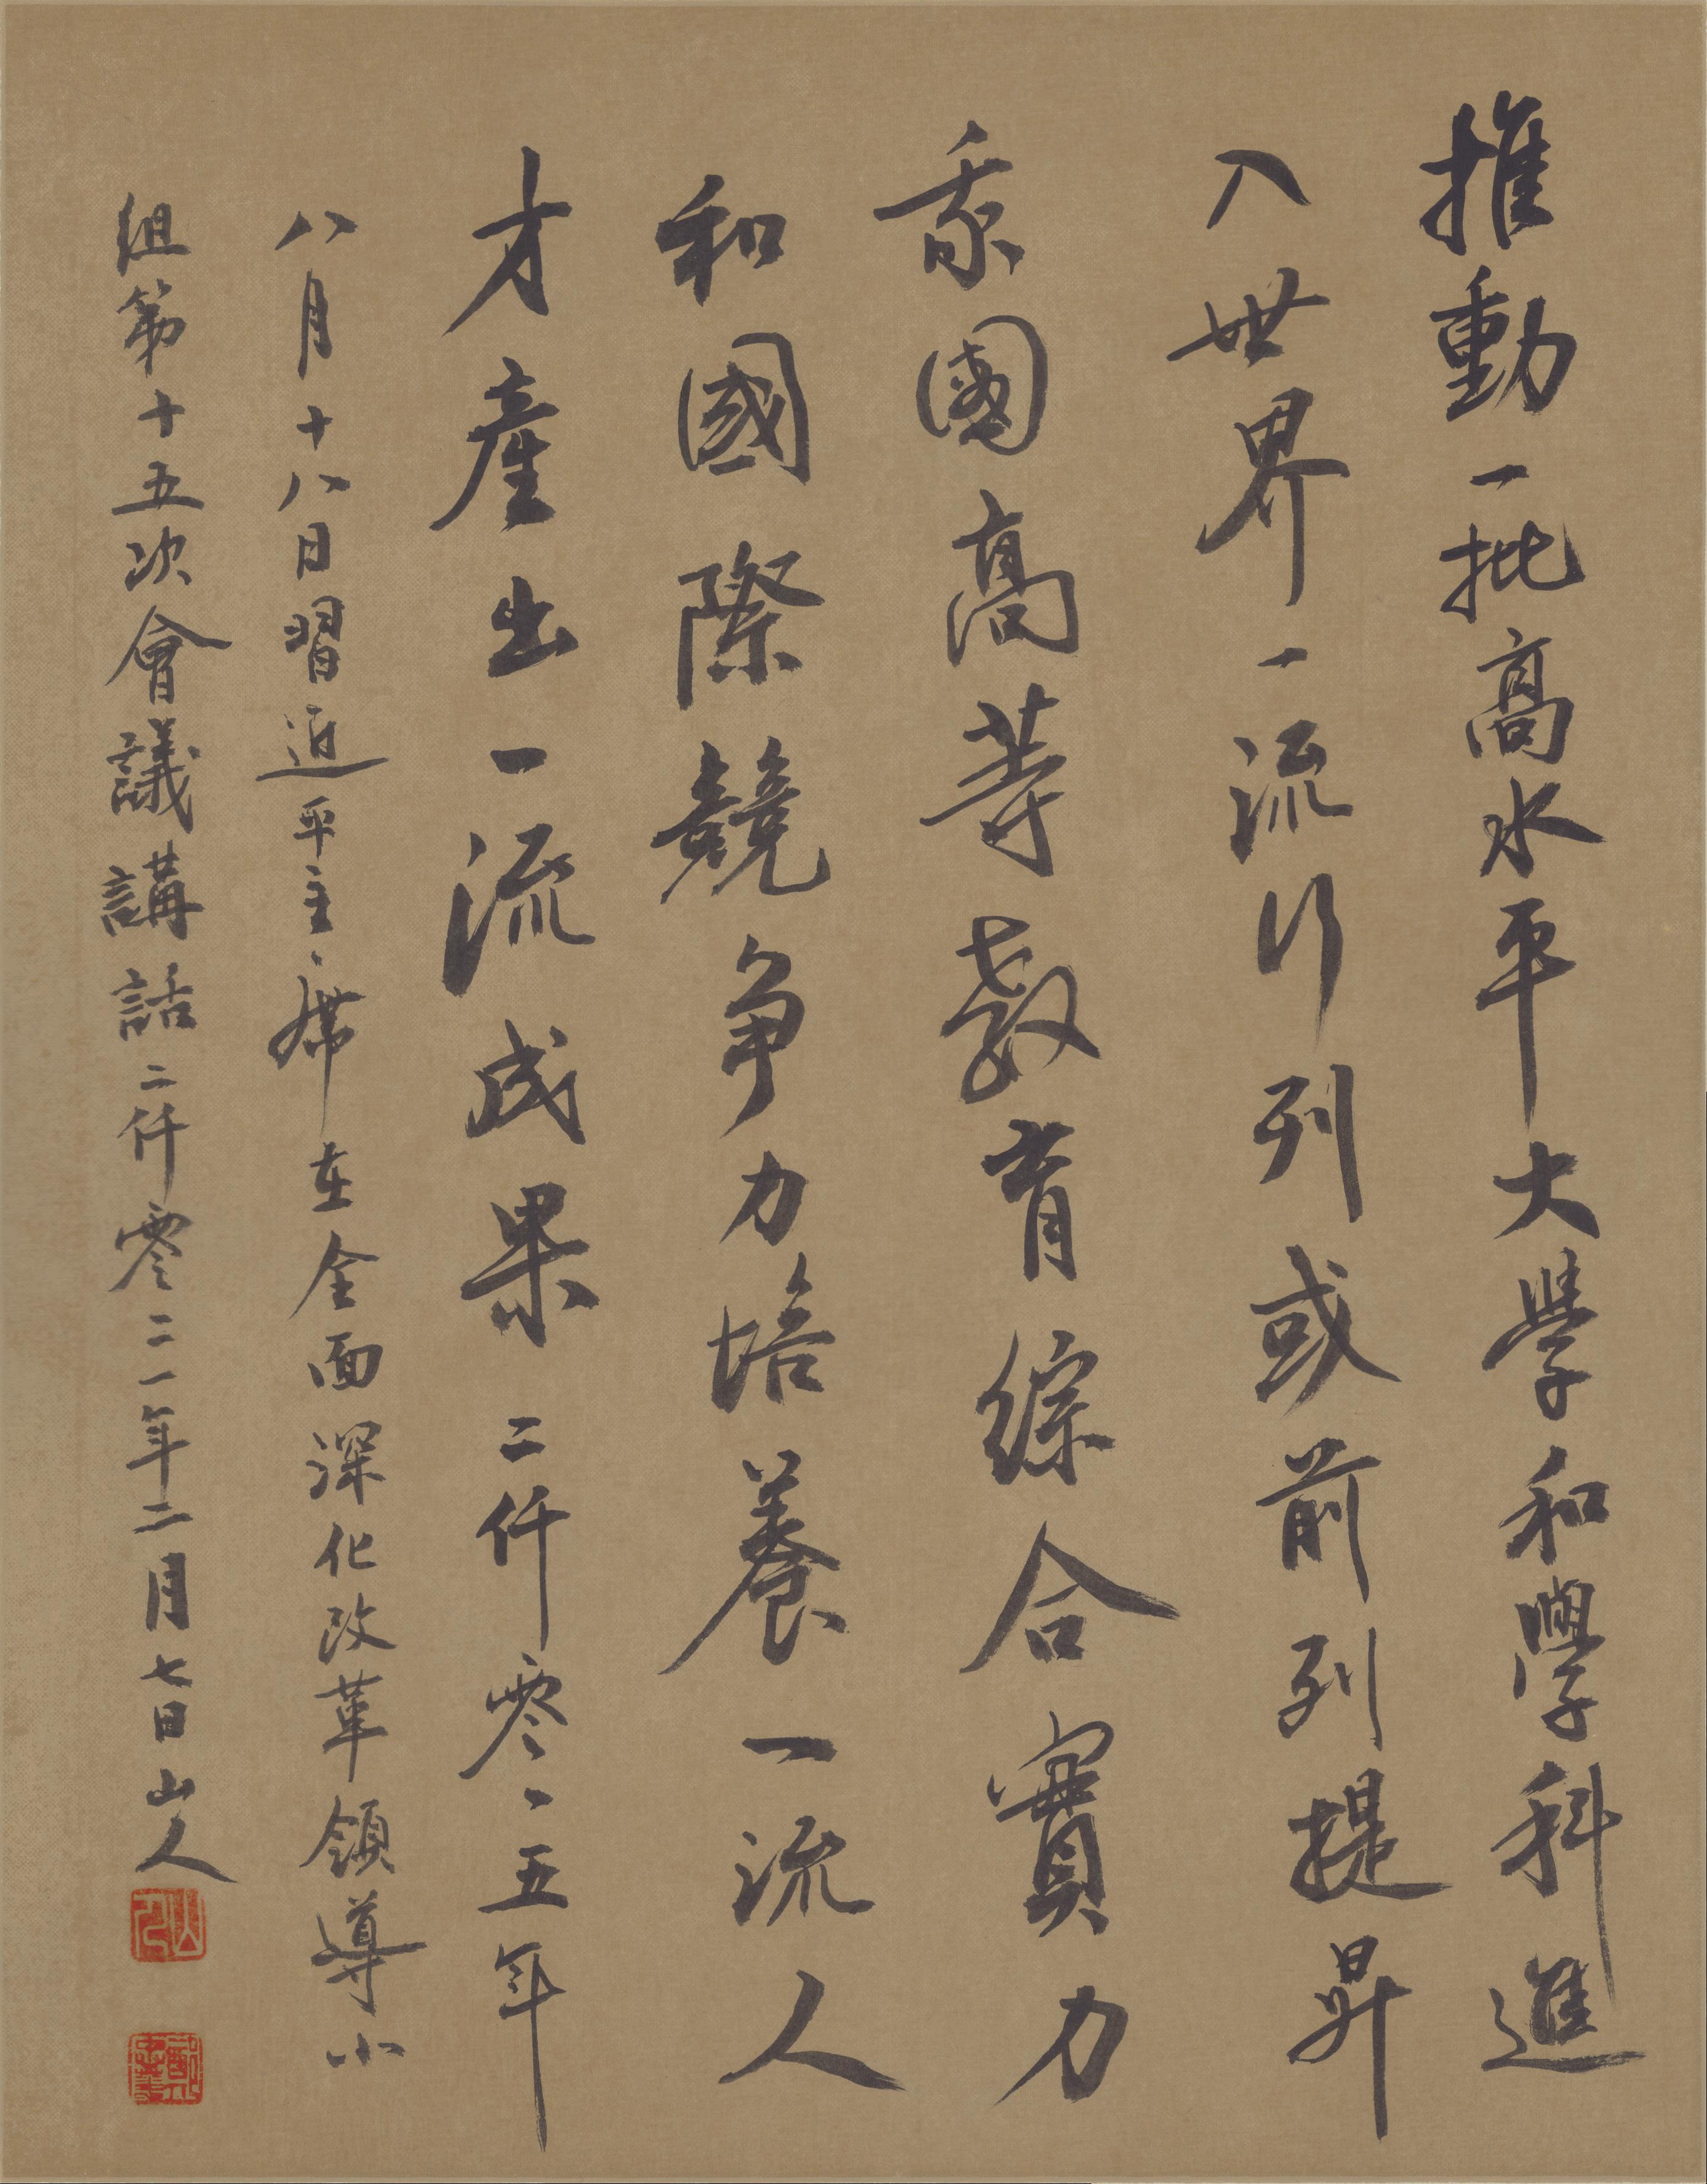 推動一批高水平大學和學科進
入世界一流行列或前列提昇
我國高等教育綜合實力
和國際競争力培養一流人
才產出一流成果二仟零一五年
八月十八日習近平主席在全面深化改革領導小
組第十五次會議講話二仟零二一年二月七日山人
山人